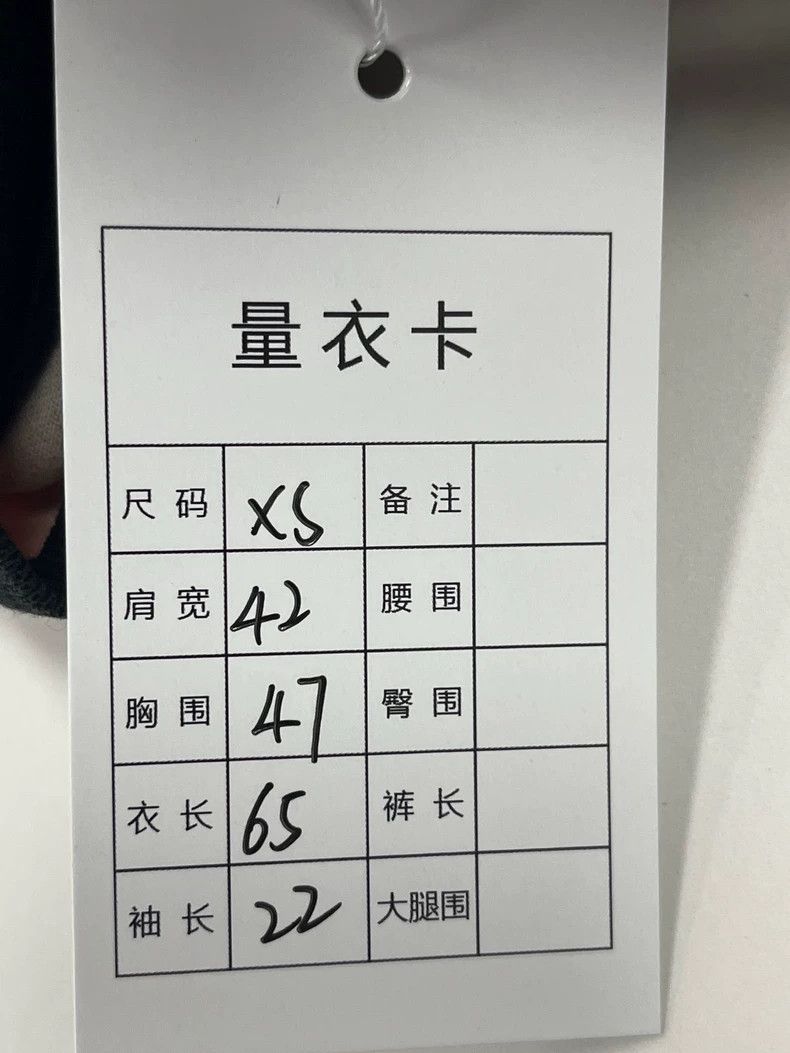 量衣卡
尺码 XS 备注
肩宽 42 腰围
胸围 47 臀围
衣长 65 裤长
袖长 22 大腿围